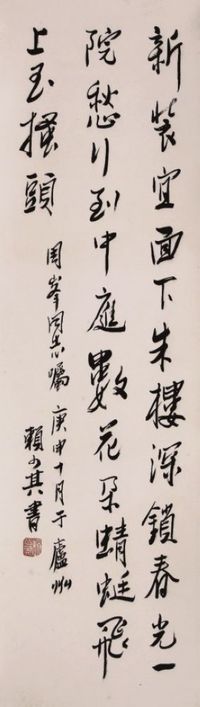 新妆宜面下朱樓深鎖春光一
院愁行到中庭數花朵蜻蜓飛
上玉搔頭
周峯同志嘱 庚申十月于廬州
賴少其書